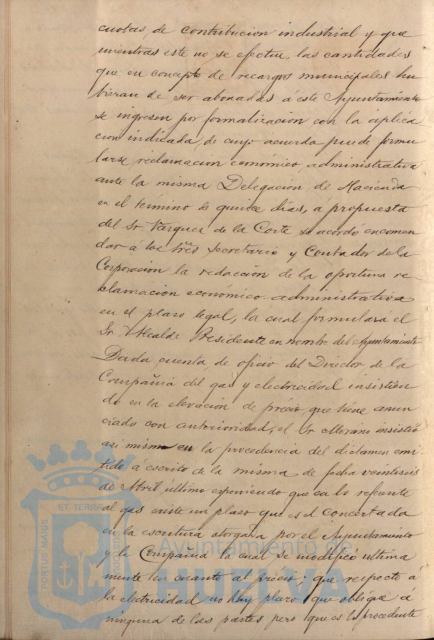 cuotas de contribucion industrial y que
mientras este no se efectue, las cantidades
que en concepto de recargos municipales hu
bieran de ser abonadas á este Ayuntamiento
se ingresen por formalizacion con la aplica
cion indicada, de cuyo acuerdo puede formu
larse reclamacion económico administrativa
ante la misma Delegacion de Hacienda
en el termino de quince dias, á propuesta
del Sr Vazquez de la Corte se acordó encomen
dar á los Sres Secretario y Contador de la
Corporacion la redaccion de la oportuna re
clamacion económico-administrativa
en el plazo legal, la cual formulará el
Sr Alcalde Presidente en nombre del Ayuntamiento
Dada cuenta de oficio del Director de la
Compañia del gas y electricidad insistien
do en la elevacion de precio que tiene anun
ciado con anterioridad, el Sr Moreno insistió
asi mismo en la procedencia del dictamen emi
tido á escrito de la misma de fecha veintiseis
de Abril ultimo exponiendo que en lo referente
al gas existe un plazo que es el concertado
en la escritura otorgada por el Ayuntamiento
y la Compañia la cual se modificó ultima
mente en cuanto al precio; que respecto á
la electricidad no hay plazo que obligue á
ninguna de las partes pero que es lo procedente
PORTUS MARIS
ET TERRAE
Ayuntamiento de
HUELVA